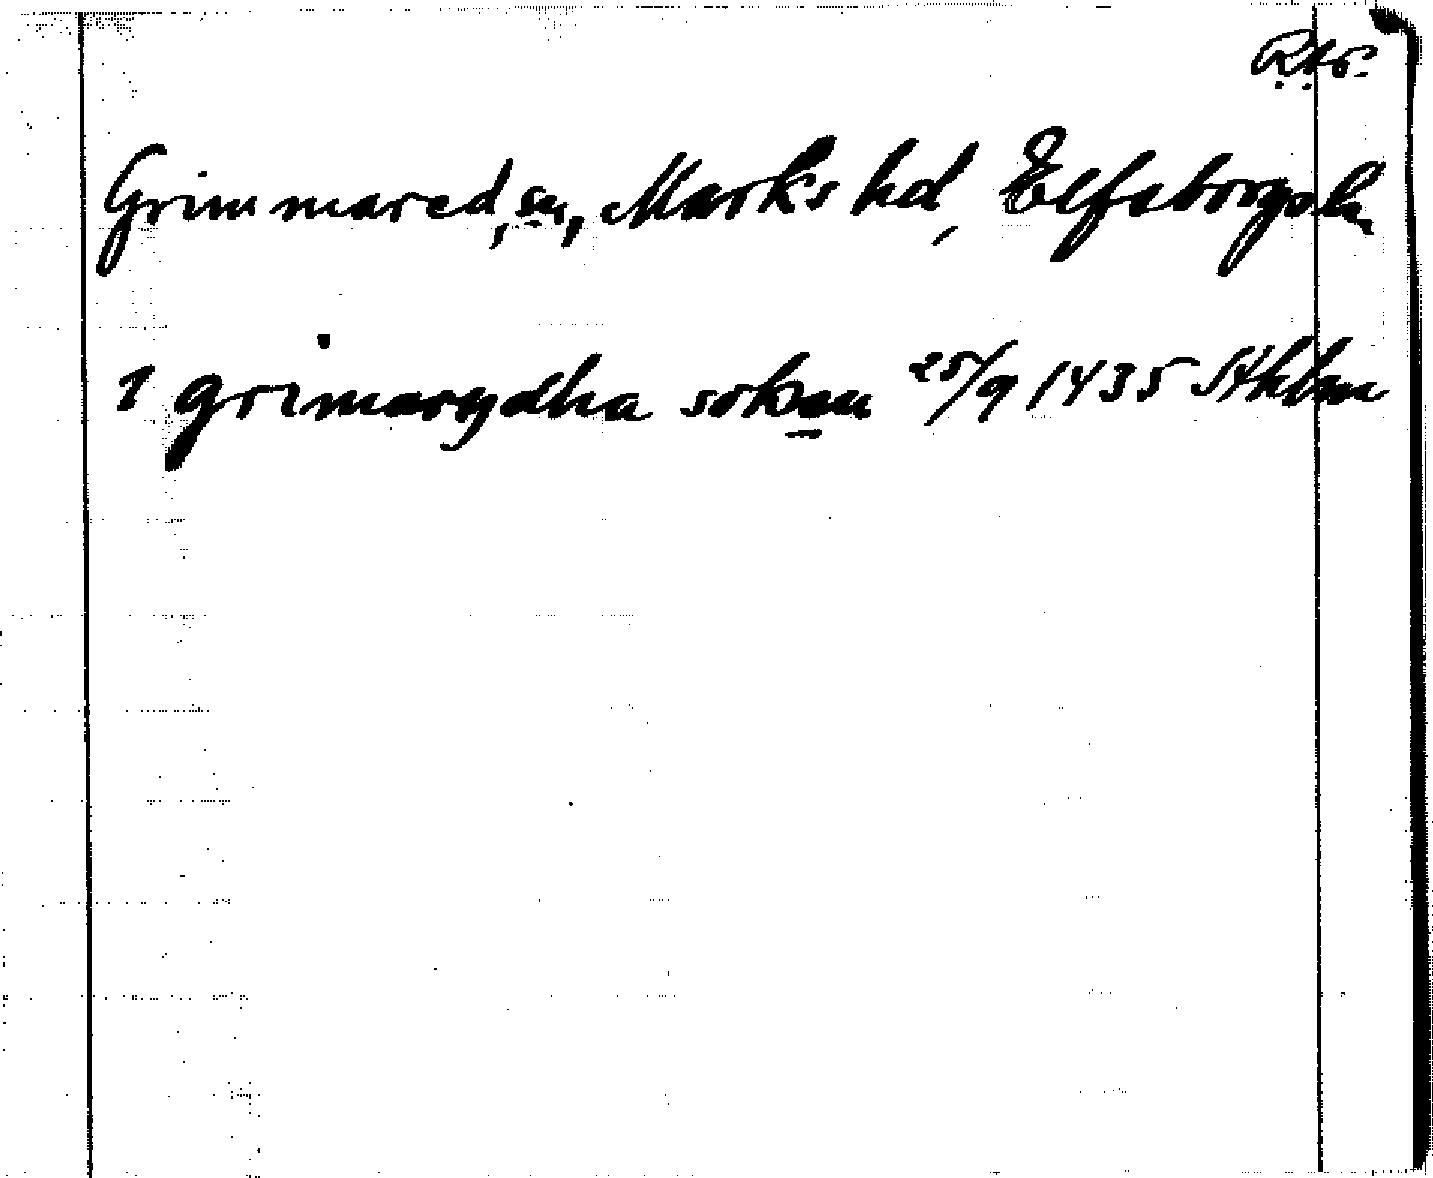 Grimmared, sn, Marks hd, Elfsborgs ln
I grimarydha soken 25/9 1435 Sthlm